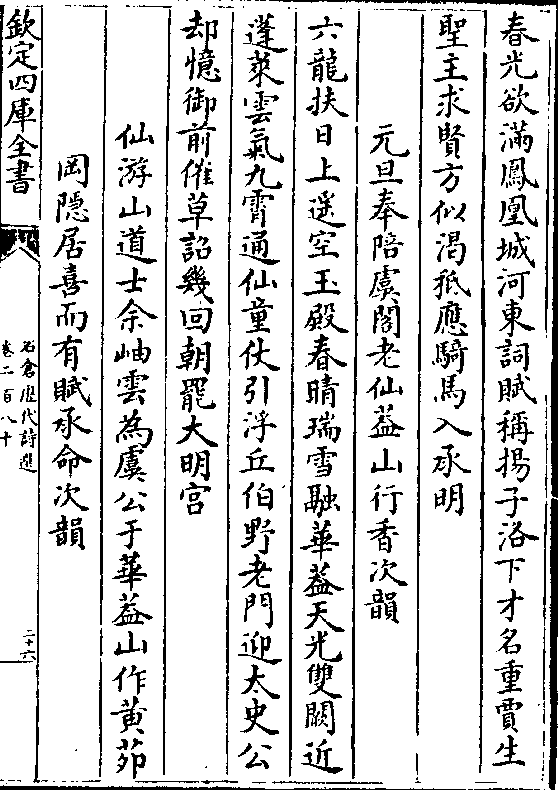 春光欲滿鳳凰城河東詞賦稱揚子洛下才名重賈生
聖主求賢方似渴秪應騎馬入承明
元旦奉陪虞閣老仙葢山行香次韻
六龍扶日上遥空玉殿春晴瑞雪融華葢天光雙闕近
蓬萊雲氣九霄通仙童仗引浮丘伯野老門迎太史公
却憶御前催草詔幾回朝罷大明宫
仙游山道士余岫雲為虞公于華葢山作黄茆
岡隠居喜而有賦承命次韻
欽定四庫全書
石倉歴代詩選
卷二百八十
二十六